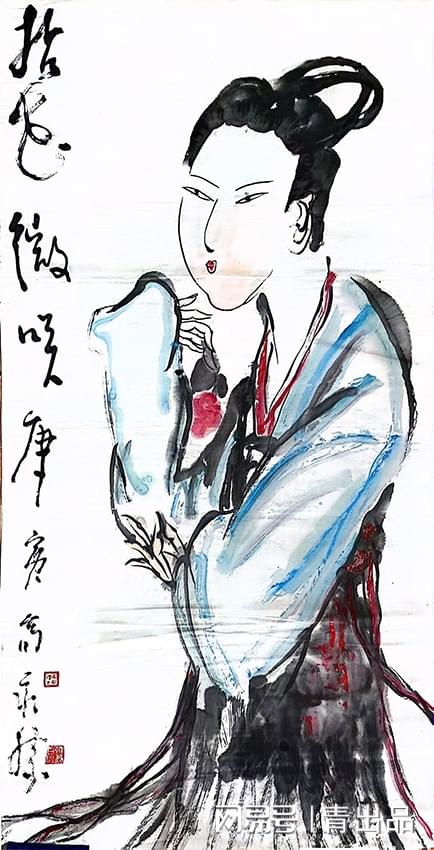 拈花微咲庚寅高
网易号 | 青出品